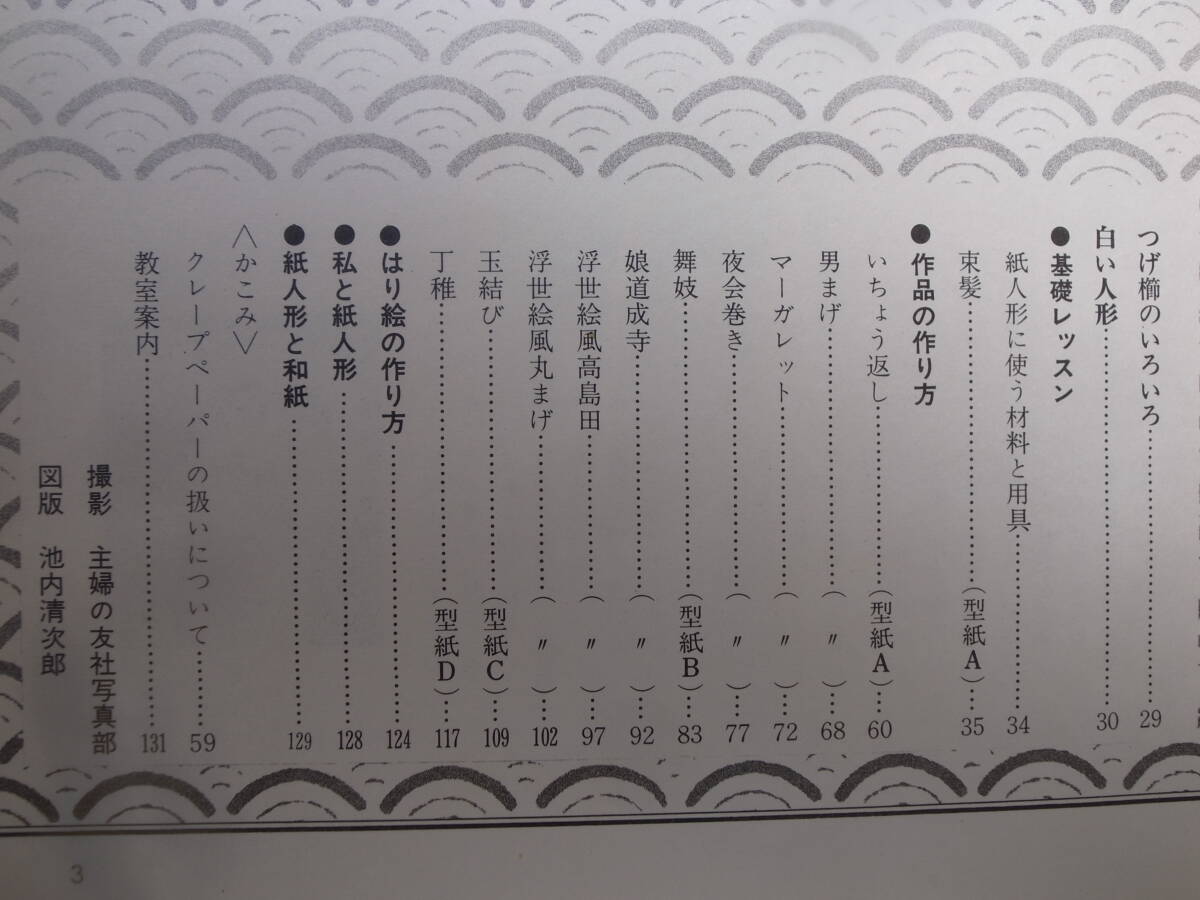 つげ櫛のいろいろ……………29
白い人形……………30
●基礎レッスン
紙人形に使う材料と用具……………34
束髪……………(型紙A)…35
●作品の作り方
いちょう返し……………(型紙A)…60
男まげ……………(〃)…68
マーガレット……………(〃)…72
夜会巻き……………(〃)…77
舞妓……………(型紙B)…83
娘道成寺……………(〃)…92
浮世絵風高島田……………(〃)…97
浮世絵風丸まげ……………(〃)…102
玉結び……………(型紙C)…109
丁稚……………(型紙D)…117
●はり絵の作り方……………124
●私と紙人形……………128
●紙人形と和紙……………129
〈かこみ〉
クレープペーパーの扱いについて……………59
教室案内……………131
撮影 主婦の友社写真部
図版 池内清次郎
3